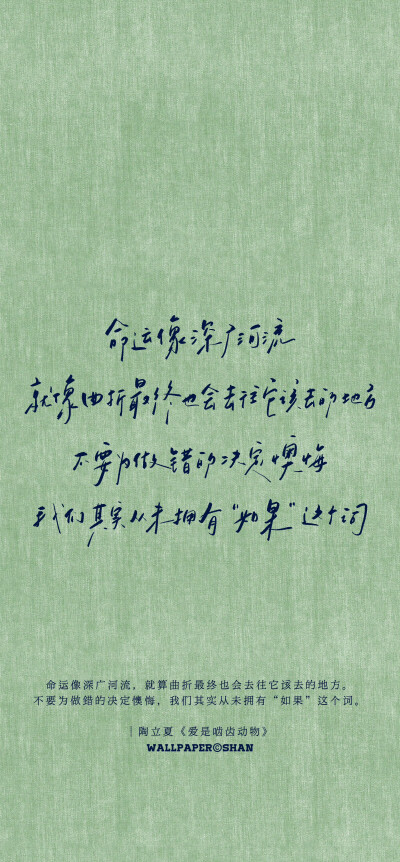 命运像深广河流
就像曲折最终也会去往它该去的地方
不要为做错的决定懊悔
我们其实从未拥有“如果”这个词
命运像深广河流，就算曲折最终也会去往它该去的地方。
不要为做错的决定懊悔，我们其实从未拥有“如果”这个词。
｜陶立夏《爱是啮齿动物》
WALLPAPER©SHAN